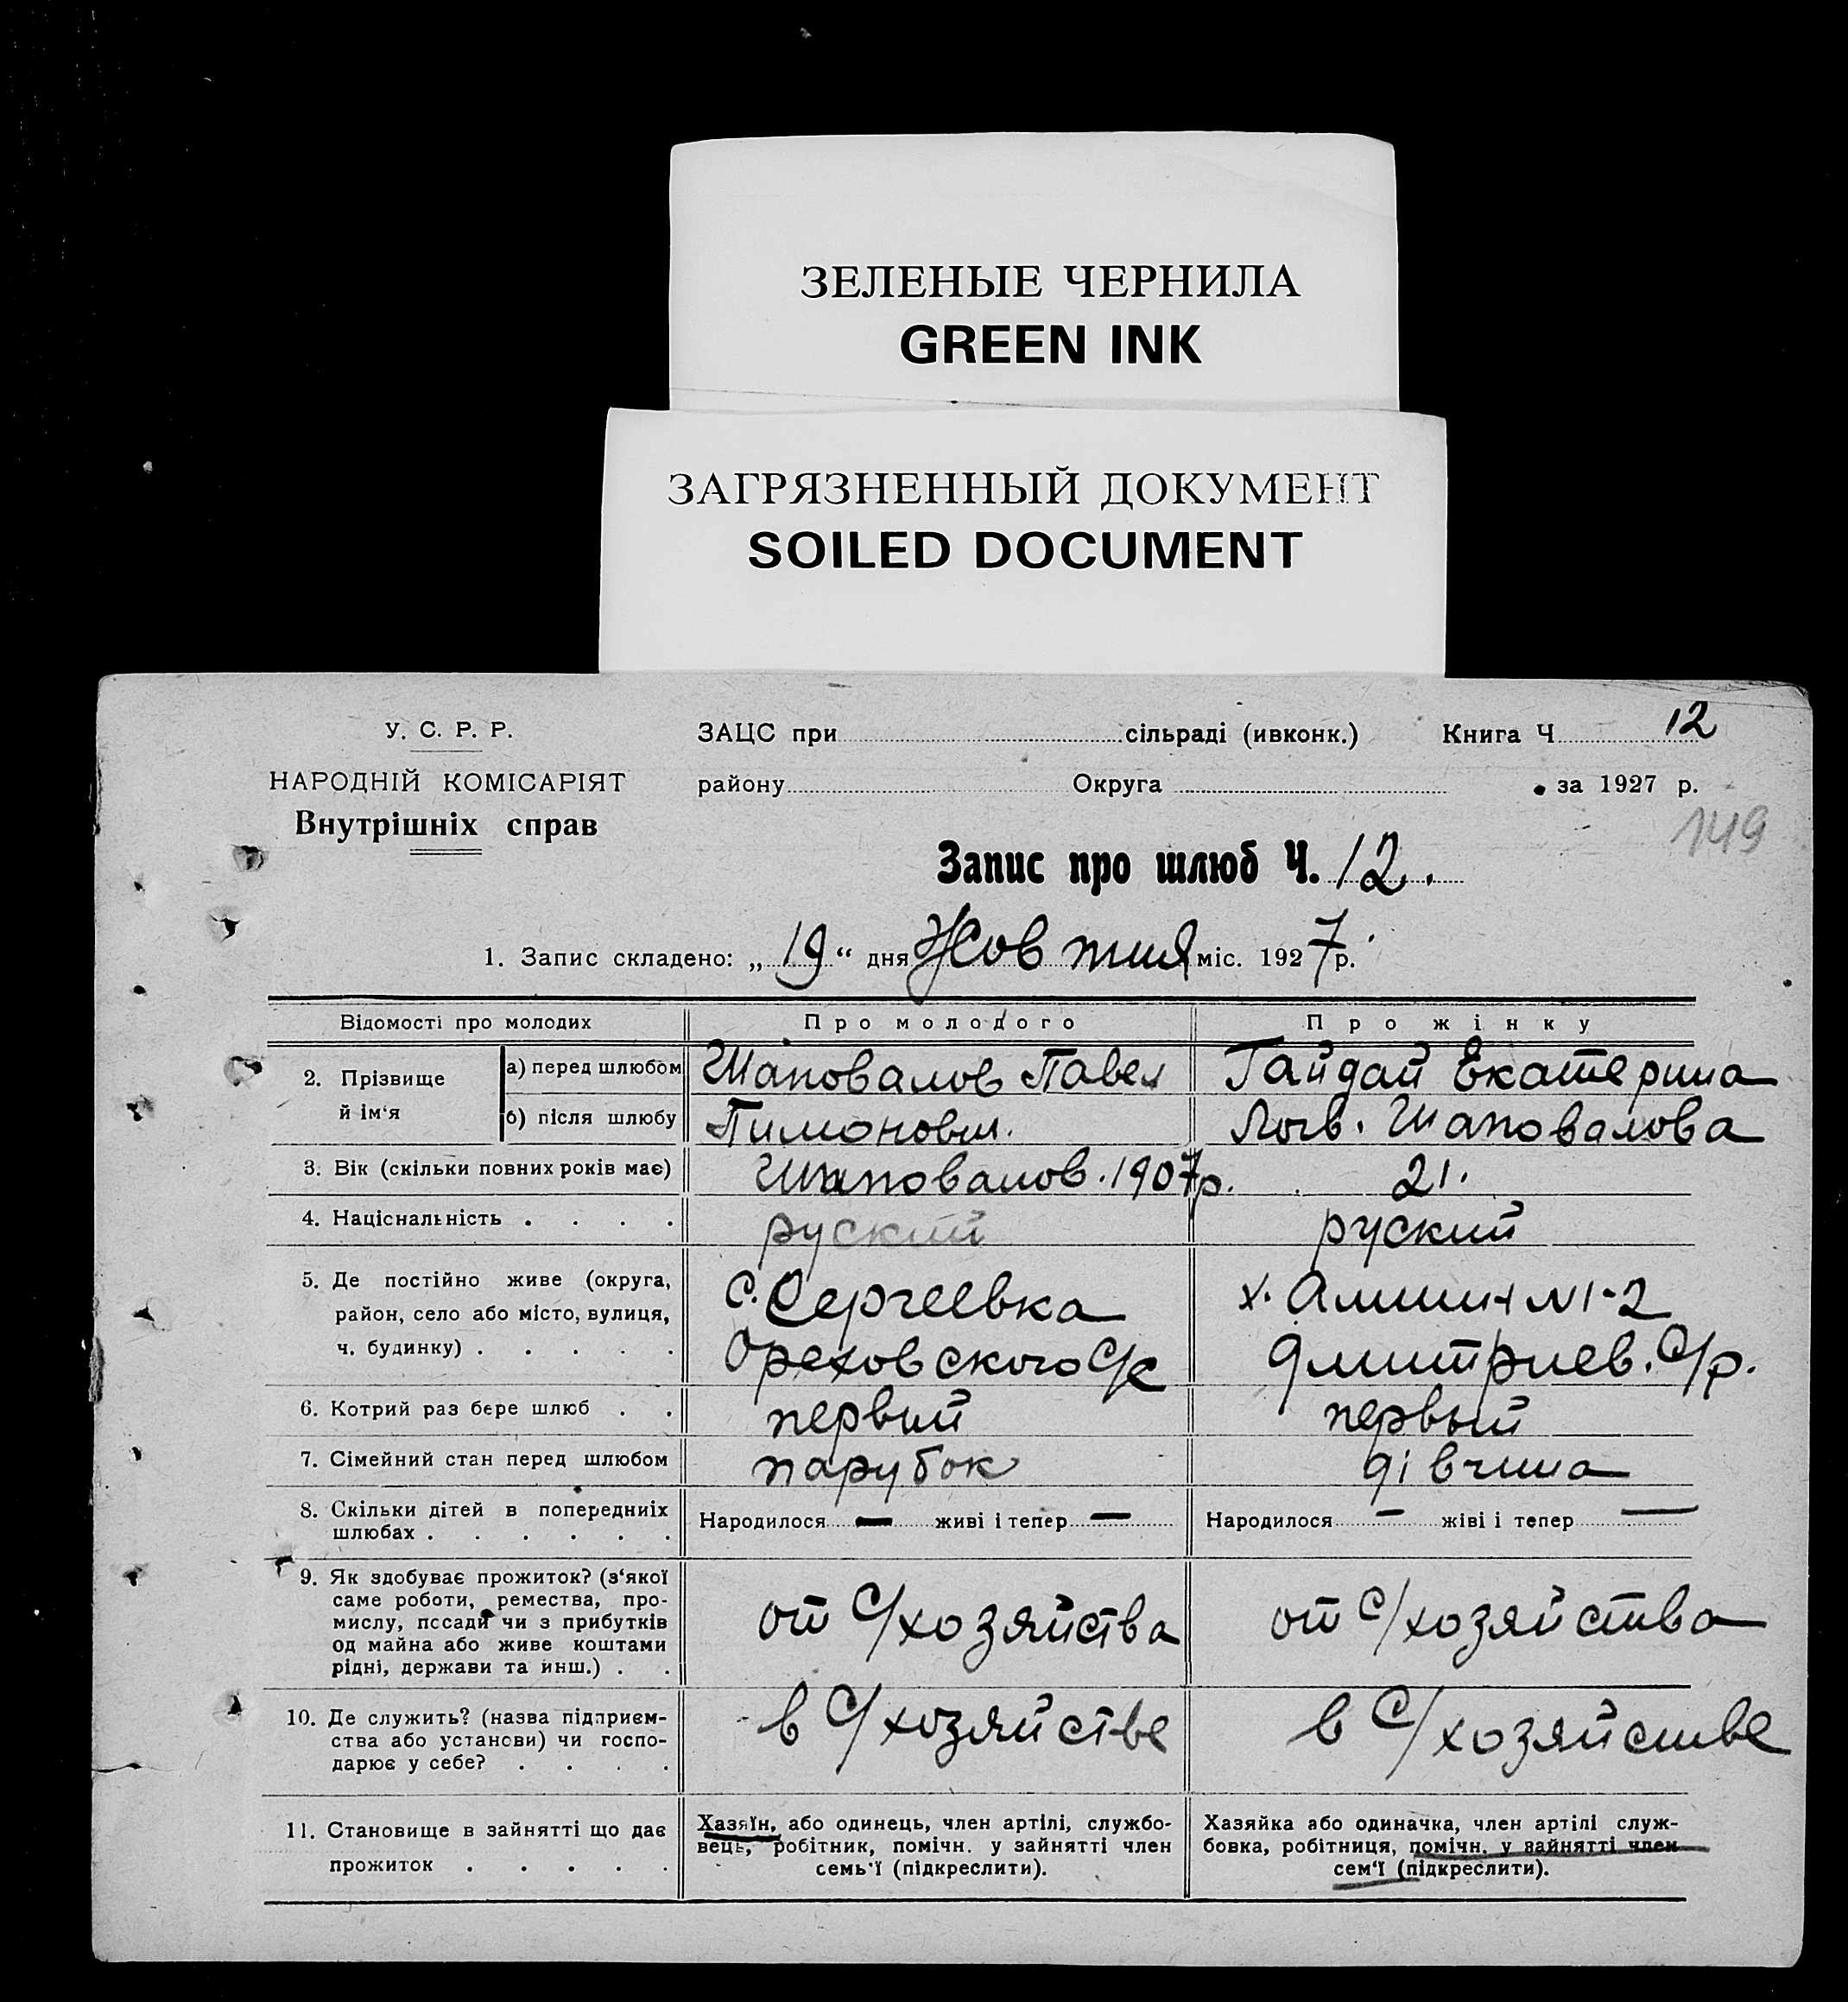 ЗЕЛЕНЫЕ ЧЕРНИЛА
GREEN INK
ЗАГРЯЗНЕННЫЙ ДОКУМЕНТ
SOILED DOCUMENT
У. С. Р. Р.
НАРОДНІЙ КОМІСАРІЯТ
Внутрішніх справ
ЗАЦС при сільраді (ивконк.) Книга Ч 12
району Округа за 1927 р.
149
Запис про шлюб Ч. 12.
1. Запис складено: „ 19 “ дня Жовтня міс. 1927 р.
Відомості про молодих Про молодого Про жінку
2. Прізвище й ім‘я
а) перед шлюбом Шаповалов Павел Гайдай Екатерина
б) після шлюбу Тимонович. Логв. Шаповалова
3. Вік (скільки повних років має) Шаповалов. 1907 р. 21.
4. Націснальність . . . . руский руский
5. Де постійно живе (округа,
район, село або місто, вулиця,
ч. будинку) . . . . .
с. Сергеевка
Ореховского с/с
х. N1-2
Дмитриев. С/р.
6. Котрий раз бере шлюб . . первий первый
7. Сімейний стан перед шлюбом парубок дівчина
8. Скільки дітей в попередниіх
шлюбах . . . . . .
Народилося — живі і тепер —
Народилося — жіві і тепер —
9. Як здобуває прожиток? (з‘якої
саме роботи, ремества, про-
мислу, пссади чи з прибутків
од майна або живе коштами
рідні, держави та инш.) . .
от с/хозяйства
от с/хозяйства
10. Де служить? (назва підприєм-
ства або устансви) чи госпо-
дарює у себе? . . . .
в с/хозяйстве
в с/хозяйстве
11. Становище в зайнятті що дає
прожиток . . . . .
Хазяїн, або одинець, член артілі, службо-
вець, робітник, помічн. у зайнятті член
семь‘ї (підкреслити).
Хазяйка або одиначка, член артілі служ-
бовка, робітниця, помічн. у зайнятті член
сем‘ї (підкреслити).